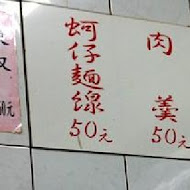 肉羹
50元
蚵仔麵線
50元